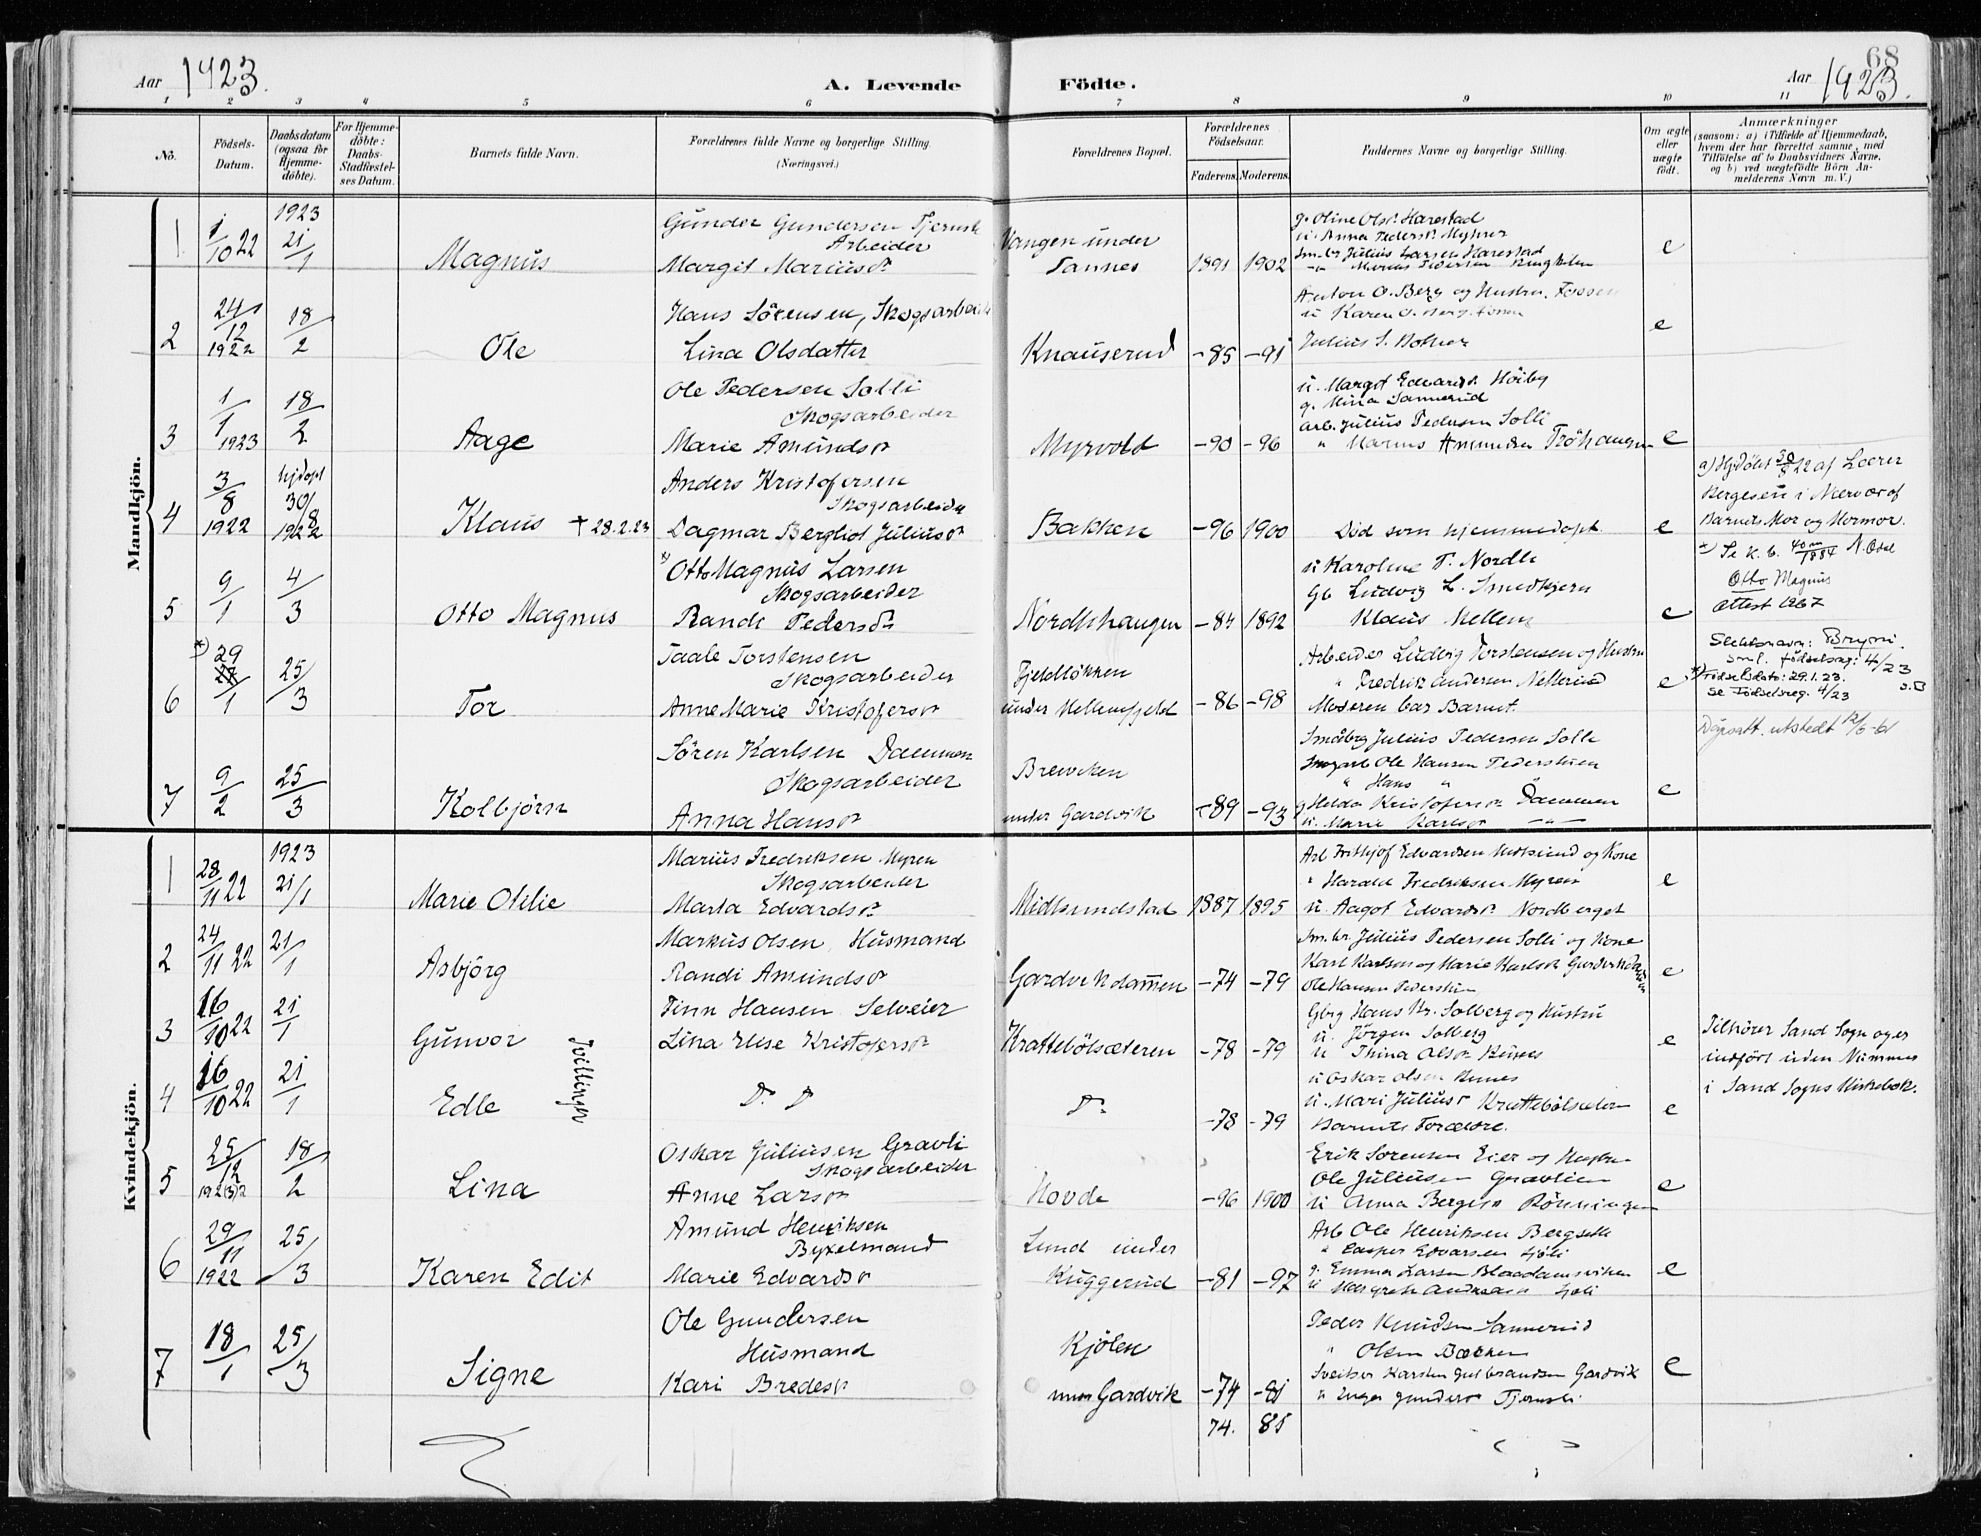 68
Aar 1923.
A. Levende Födte.
Aar 1923.
1 2 3 4 5 6 7 8 9 10 11
No.
Födsels-Datum.
Daabsdatum (ogsaa for Hjemme-döbte).
For Hjemme-döbte: Daabs-Stadfæstel-ses Datum.
Barnets fulde Navn.
Forældrenes fulde Navne og borgerlige Stilling.
(Næringsvei.)
Forældrenes Bopæl.
Forældrenes Födselsaar.
Faderens. Moderens.
Faddernes Navne og borgerlige Stilling.
Om ægte eller uægte födt.
Anmærkninger
(saasom: a) i Tilfælde af Hjemmedaab,
hvem der har forrettet samme, med
Tilföielse af to Daabsvidners Navne,
og b) ved uægtefödte Börn An-
melderens Navn m. V.)
Mandkjön.
1 1/10 22 1923 21/1 Magnus
Gunder Gundersen
Arbeider
Margit Mariusd.
Vangen under
Sannes 1891 1902
g. Oline Olsd. Harestad
u. Anna Pedersd. Myhrer
Sm.br Julius Larsen Harestad
e
2 24/12 1922 18/2 Ole
Hans Sörensen, Skogsarbeider
Lina Olsdatter
Knauserud -85 -91
Anton O. Berg og Hustru, Fossen
u Karen O. Berg Fossen
Julius S.
e
3 1/1 1923 18/2 Aage
Ole Pedersen Solli
Skogsarbeider
Marie Amundsd
Myrvold -90 -96
u. Margot Edvardsd. Höiby
g. Mina Sannerud
Arb. Julius Pedersen Solli
" Marius Amundsen
e
4 3/8 1922 hjdöpt 30/8 1922 Klaus † 28.2.23
Anders Kristofersen
Skogsarbeider
Dagmar Bergliot Juliusd.
Bakken -96 1900
Död som hjemmedöpt
e
a) Hjdöbt 30/8 22 af Lærer
Bergesen i Nærvær af
Barnets Mor og Mormor.
5 9/1 4/3 Otto Magnus
x) Otto Magnus Larsen
Skogsarbeider
Randi Pedersd.
Nordlihaugen -84 1892
u Karoline P. Nordli
Gb Ludvig L. Smedhjern
Klaus Mellem
e
x) Se k. b. 40 m/1884 N. Osel
Otto Magnus
Attest 1967
6 x) 29/1 25/3 Tor
Taale Torstensen
Skogsarbeider
Anne Marie Kristofersd
Fjeldlökken
under Mellemfjeld -86 -98
Arbeider Ludvig Torstensen og Hustru
" Fredrik Andersen
Moderen bar Barnet.
e
Slektsnavn: Bryni
sml. födselsreg: 4/23
x) Födselsdato: 29.1.23.
se Födselsreg. 4/23
Dåpsatt. utstedt
7 9/2 25/3 Kolbjörn
Sören Karlsen Dammen
Skogsarbeider
Anna Hansd
Brevken
under Gardvik -89 -93
Småbrg Julius Pedersen Solli
Skogarb Ole Hansen Pederstuen
" Hans "
g Helda Kristofersd Dammen
u. Marie Karlsd — " —
e
Kvindekjön.
1 28/11 22 1923 21/1 Marie Otilie
Marius Fredriksen Myren
Skogsarbeider
Marta Edvardsd.
Midtsundstad 1887 1895
Arb Frithjof Edvardsen Midtsund og Kone
" Harald Fredriksen Myren
u. Aagot Edvardsd. Nordberget
e
2 24/11 22 21/1 Asbjörg
Markus Olsen Husmand
Randi Amundsd
Gardvikdammen -74 -79
Sm.br Julius Pedersen Solli og Kone
Karl Karlsen og Marie Karlsd Gardvikdammen
Ole Hansen Pederstuen
e
3 16/10 22 21/1 Gunvor
Finn Hansen Selveier
Lina Elise Kristofersd
Krattebölsæteren -78 -79
Gbrg Hans Kr. Solberg og Hustru
u. Jörgen Solberg
u Thina Olsd
e
Tilhörer Sand Sogn og er
indfört uden Nummer
i Sand Sogns Kirkebok.
Tvillinger
4 16/10 22 21/1 Edle
D. D
D. -78 -79
u Oskar Olsen
u. Mari Juliusd Krattebölsæteren
Barnets Forældre.
e
5 25/12 1922 18/2 Lina
Oskar Juliusen Gravli
Skogsarbeider
Anne Larsd
Hovde -96 1900
Erik Sorensen Eier og Hustru
Ole Juliusen Gravlien
u Anna Bergesd Rönningen
e
6 29/11 1922 25/3 Karen Edit
Amund Henriksen
Byxelmand
Marie Edvardsd
Lund under
Kuggerud -81 -97
Arb Ole Henriksen Bergseth
" Casper Edvarsen Sjöli
g. Emma Larsen Blaadamsviken
u Margrethe Andreasd Sjöli
e
7 18/1 25/3 Signe
Ole Gundersen
Husmand
Kari Bredesd
Kjölen
under Gardvik -74 -81
Peder Knudsen Sannerud
" Olsen Bakken
Sveitser Karsten Gulbrandsen Gardvik
u Inga Gundersd
e
74. 85